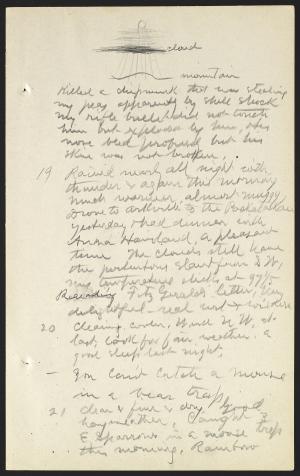 cloud
mountain
Killed a chipmunk that was stealing
my peas apparently by shell shock
my rifle bullet did not touch
him but exploded by him, his
nose bled profused but his
skin was not broken.
19 Rained nearly all night with
thunder & again this morning
much warmer, almost muggy
Drove to Arkville to the
yesterday & had dinner with
Anna Haviland, a pleasant
time. The clouds still have
the portentous slant from S.W,
my temperature sticks at 97½
Rereading Fitz Geralds letters, very
delightful - real wit & wisdom
20 Clearing, cooler, Wind N.W. at
last, look for fair weather. a
good sleep last night,
- You can't catch a mouse
in a bear trap,
21 clear & fine & dry. Good
hay weather. Caught 2
E sparrows in a mouse trap
this morning, Rainbow